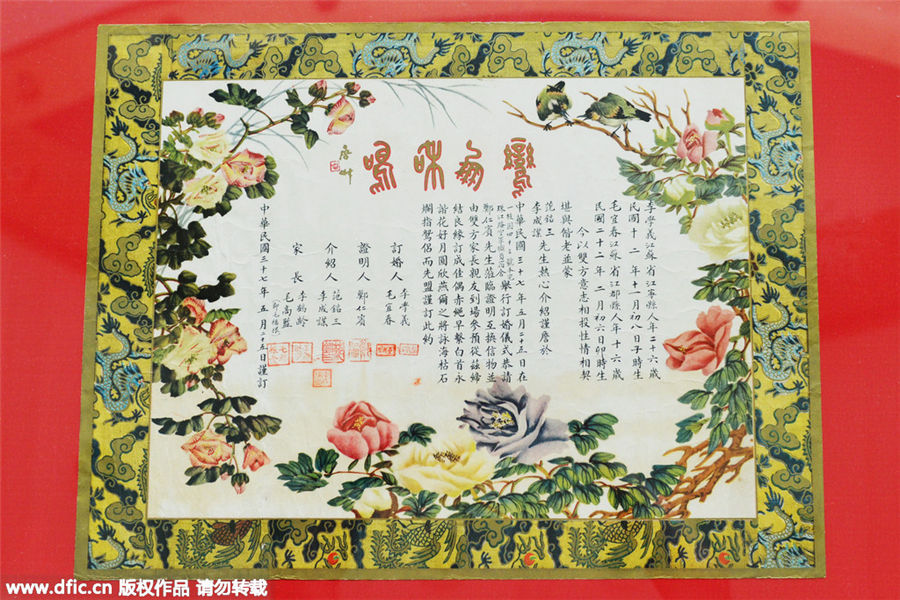 鸞鳳和鳴
李學義江蘇省江寧縣人年二十六歲
民國十二年十一月初八日子時生
毛宜春江蘇省江都縣人年十六歲
民國二十二年二月初六日卯時生
今以雙方意志相投性情相契
堪與偕老並蒙
范銘三
李成謀先生熱心介紹謹詹於
中華民國三十七年五月二十五日在
舉行訂婚儀式恭請
鄭仁賓先生蒞臨證明互換信物並
由雙方家長親友到場參預從茲締
結良緣訂成佳偶赤繩早繫白首永
諧花好月圓欣燕爾之將詠海枯石
爛指鴛侶而先盟謹訂此約
訂婚人 李學義
毛宜春
證明人 鄭仁賓
介紹人 范銘三
李成謀
家長 李鶴齡
毛高監
中華民國三十七年五月二十五日謹訂
www.dfic.cn 版权作品 请勿转载